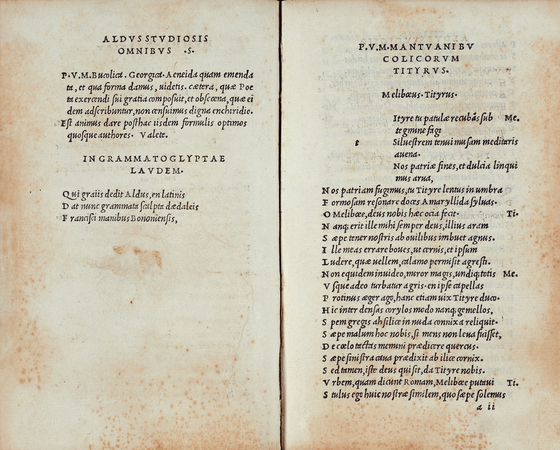 ALDVS STVDIOSIS
OMNIBVS .S.
P.V.M. Bucolica. Georgica. Aeneida quam emenda
ta, et qua forma damus, uidetis. cætera, quæ Poe
ta exercendi sui gratia composuit, et obscœna, quæ ei
dem adscribuntur, non censuimus digna enchiridio.
Est animus dare posthac iisdem formulis optimos
quosque authores. Valete.
IN GRAMMATOGLYPTAE
LAVDEM.
Qui graiis dedit Aldus, en latinis
Dat nunc grammata sculpta dædaleis
Francisci manibus Bononiensis.
P.V.M. MANTVANI BV
COLICORVM
TITYRVS.
Melibœus. Tityrus.
Ityre tu patulæ recubãs sub Me.
tegmine fagi
t Siluestrem tenui musam meditaris
auena.
Nos patriæ fines, et dulcia linqui
mus arua,
Nos patriam fugimus, tu Tityre lentus in umbra
Formosam resonare doces Amaryllida syluas.
O Melibœe, deus nobis hæc ocia fecit. Ti.
Nanq; erit ille mihi semper deus, illius aram
Sæpe tener nostris ab ouilibus imbuet agnus.
Ille meas errare boues, ut cernis, et ipsum
Ludere, quæ uellem, calamo permisit agresti.
Non equidem inuideo, miror magis, undiq; totis Me.
Vsque adeo turbatur agris. en ipse capellas
Protinus æger ago, hanc etiam uix Tityre duco.
Hic inter densas corylos modo nanq; gemellos,
Spem gregis ah silice in nuda connixa reliquit.
Sæpe malum hoc nobis, si mens non leua fuisset,
De cœlo tactas memini prædicere quercus.
Sæpe sinistra caua prædixit ab ilice cornix.
Sed tamen, iste deus qui sit, da Tityre nobis.
Vrbem, quam dicunt Romam, Melibœe putaui Ti.
Stultus ego huic nostræ similem, quo sæpe solemus
a ii